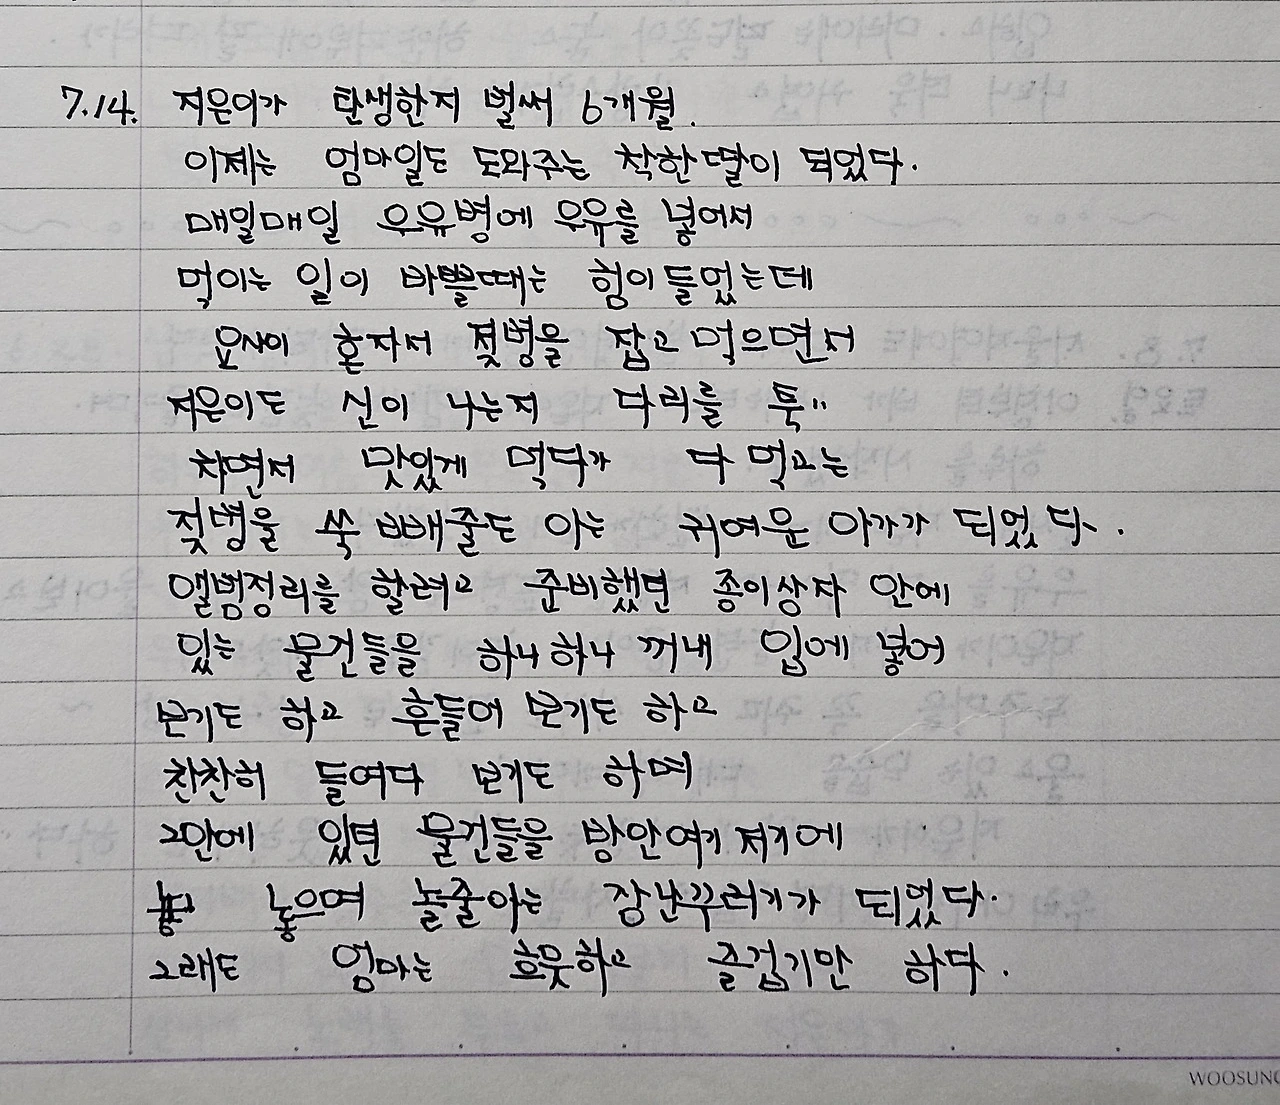 7.14. 지은이가 탄생한지 벌써 6개월.
이제는 엄마일도 도와주는 착한딸이 되었다.
매일매일 우유병에 우유를 넣어서
먹이는 일이 바쁠때는 힘이들었는데
혼자서 젖병을 잡고 먹으면서
지은이도 신이 나는지 다리를 툭〃
차면서 맛있게 먹다가 다 먹고는
젖병을 쑥 빼줄도 아는 귀여운 아가가 되었다.
앨범정리를 할려고 준비했던 종이상자 안에
있는 물건들을 하나하나 꺼내 입에 넣어
보기도 하고 흔들어 보기도 하고
찬찬히 들여다 보기도 하며
그안에 있던 물건들을 방안여기저기에
놓으며 놀줄아는 장난꾸러기가 되었다.
그래도 엄마는 흐뭇하고 즐겁기만 하다.
WOOSUNG